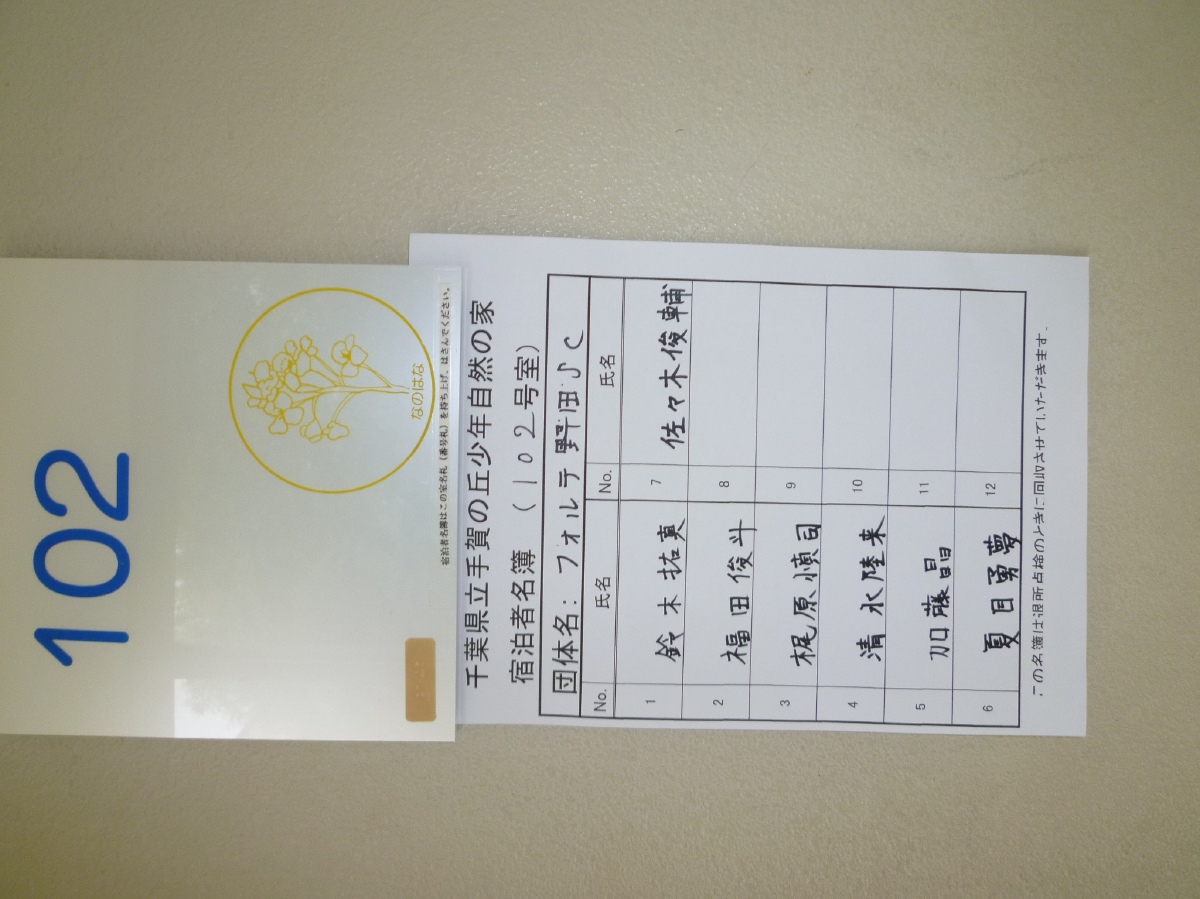 102
なのはな
宿泊者名簿はこの室名札（番号札）を持ち上げ、はさんでください。
千葉県立手賀の丘少年自然の家
宿泊者名簿 （102号室）
団体名：フォルテ野田SC
No. 氏名 No. 氏名
1 鈴木拓真 7 佐々木俊輔
2 福田俊斗 8
3 梶原慎司 9
4 清水陸来 10
5 加藤晶 11
6 夏目勇夢 12
この名簿は退所点検のときに回収させていただきます。